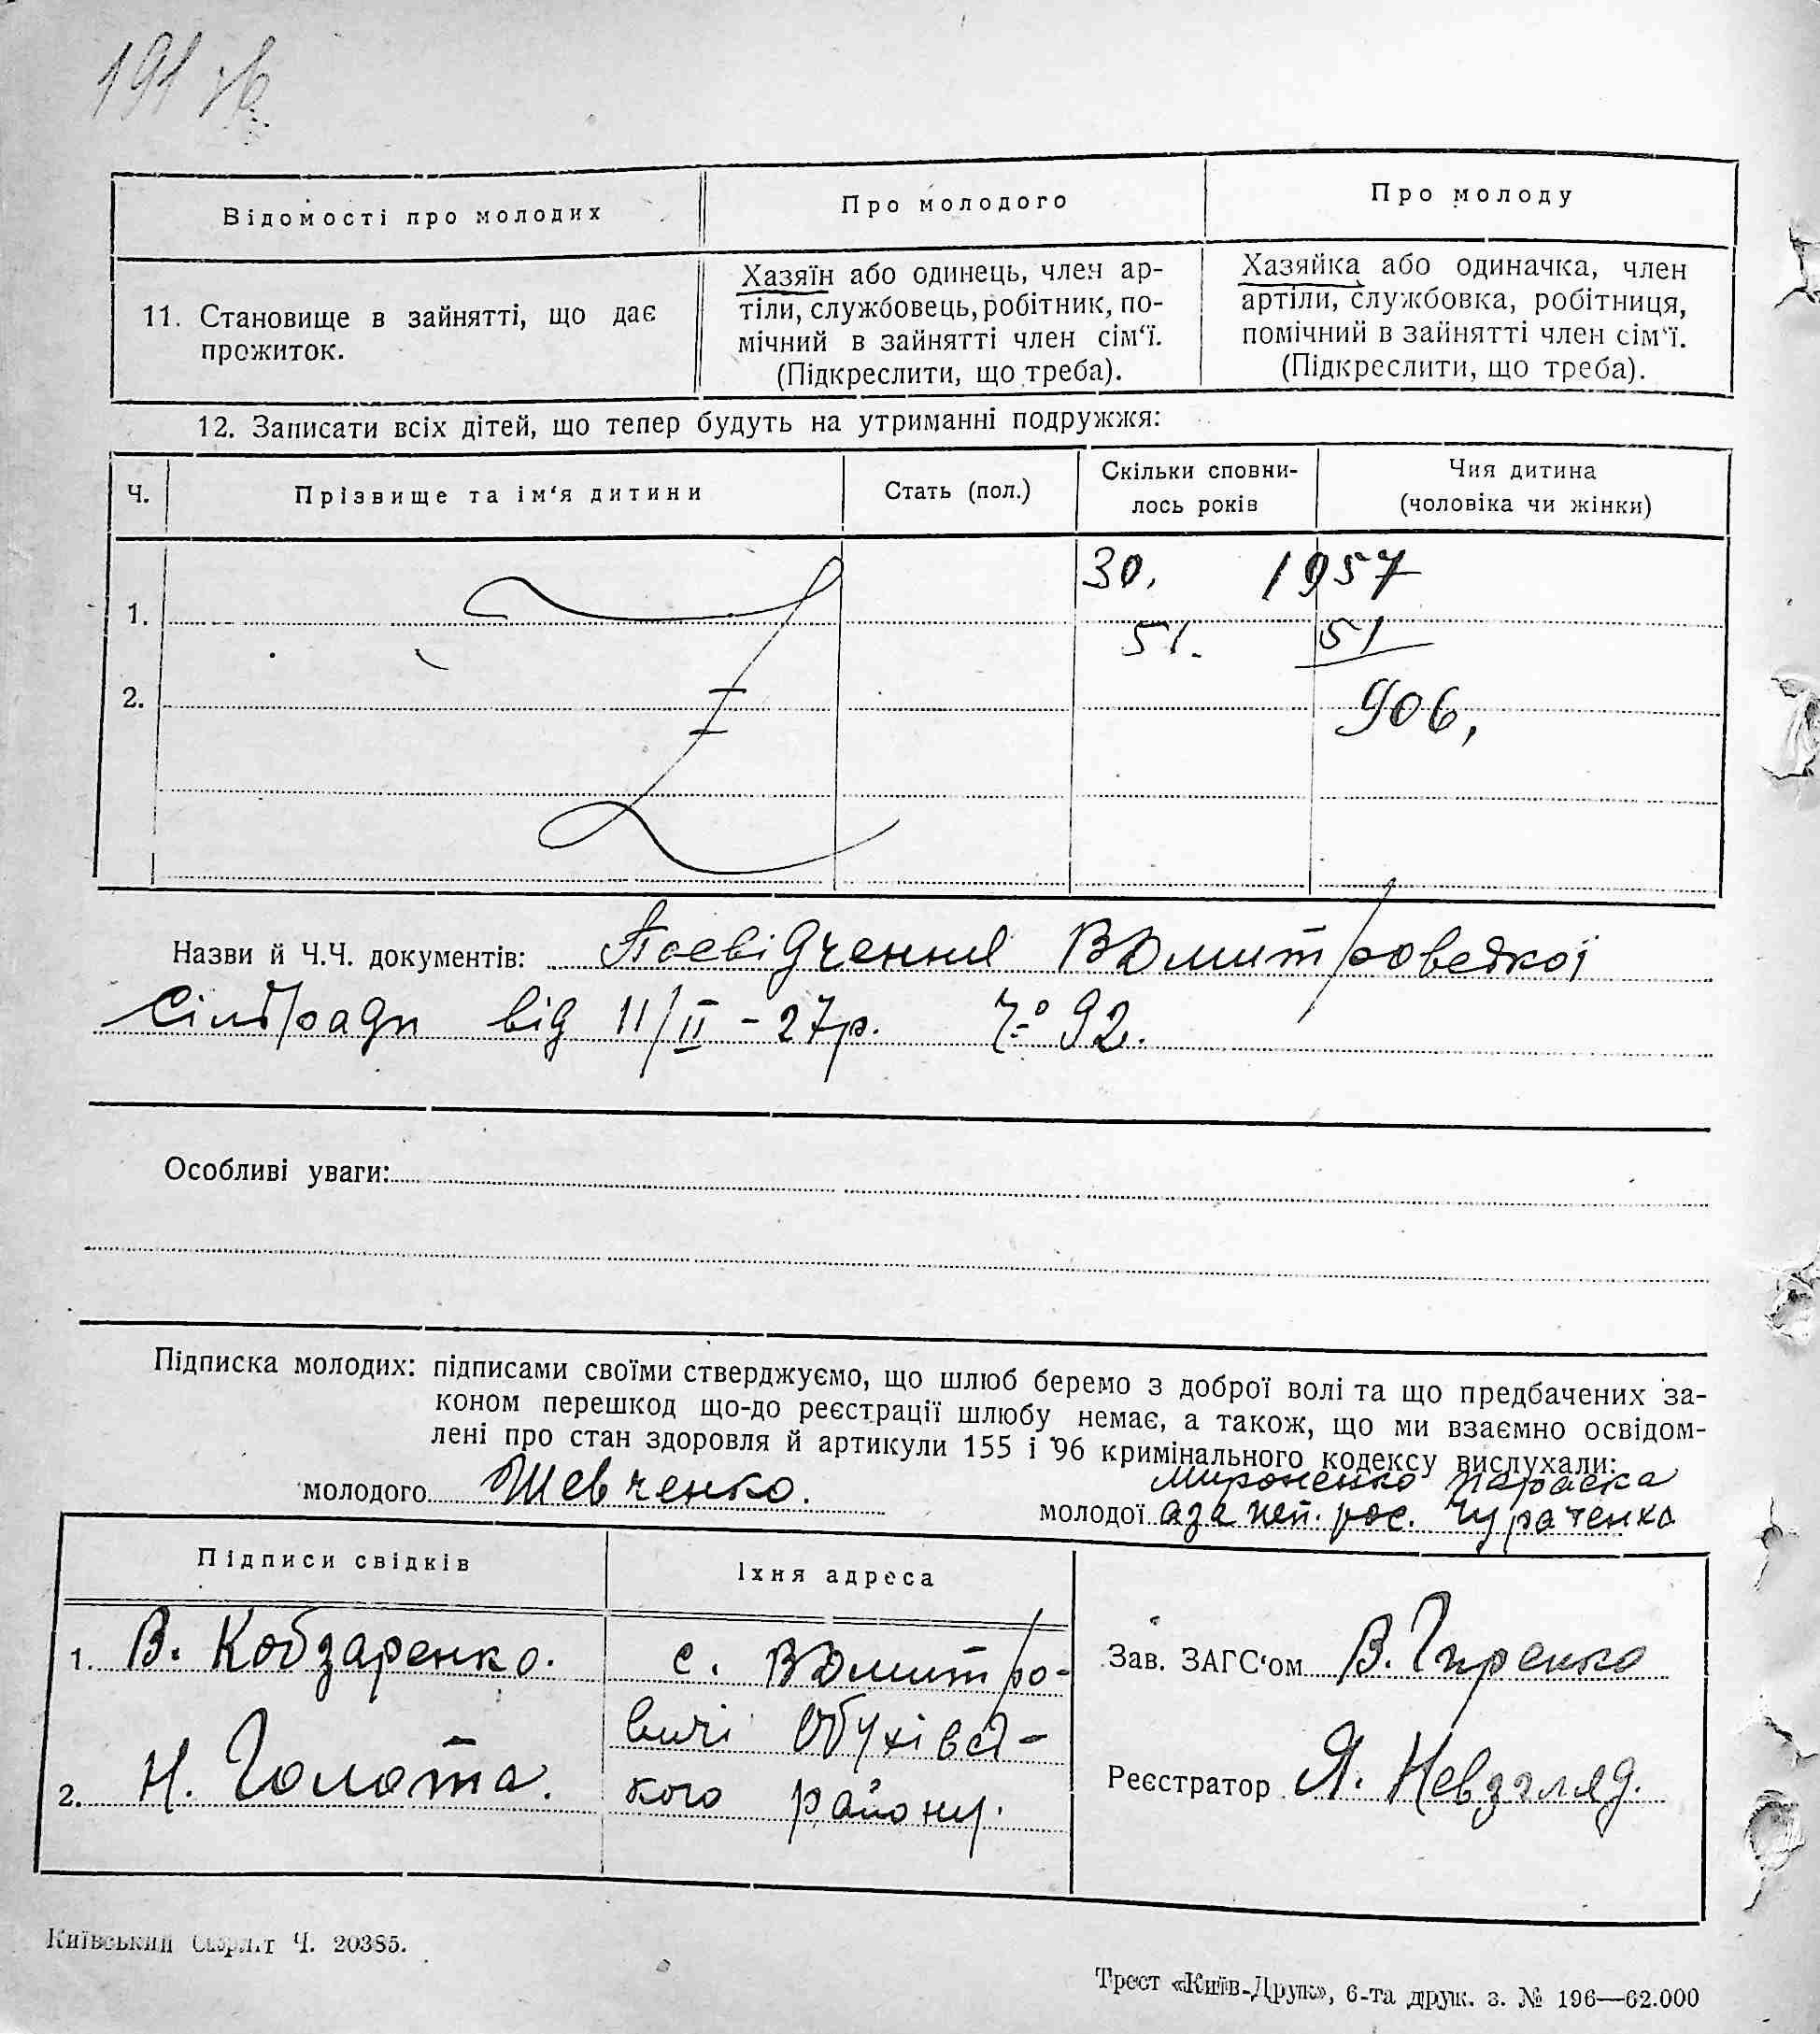 191 зв.
Відомості про молодих
Про молодого
Про молоду
11. Становище в зайнятті, що дає
прожиток.
Хазяїн або одинець, член ар-
тіли, службовець, робітник, по-
мічний в зайнятті член сім‘ї.
(Підкреслити, що треба).
Хазяйка або одиначка, член
артіли, службовка, робітниця,
помічний в зайнятті член сім‘ї.
(Підкреслити, що треба).
12. Записати всіх дітей, що тепер будуть на утриманні подружжя:
Ч.
Прізвище та ім‘я дитини
Стать (пол.)
Скільки сповни-
лось років
Чия дитина
(чоловіка чи жінки)
1.
30. 1957
51. 51
2.
906,
Назви й Ч.Ч. документів: Посвідчення ВДмитровської
Сільради від 11/II - 27р. Ч. 92.
Особливі уваги:
Підписка молодих: підписами своїми стверджуємо, що шлюб беремо з доброї волі та що предбачених за-
коном перешкод що-до реєстрації шлюбу немає, а також, що ми взаємно освідом-
лені про стан здоровля й артикули 155 і 96 кримінального кодексу вислухали:
молодого Шевченко.
Мироненко Параска
молодої а за неп. рос. Чураченко
Підписи свідків
Їхня адреса
1. В. Кобзаренко.
с. ВДмитро-
вичі Обухівсь-
2. Н. Голота.
кого району.
Зав. ЗАГС‘ом В. Гиренко
Реєстратор Я. Невзгляд.
Київський Окрліт Ч. 20385.
Трест «Київ-Друк», 6-та друк. з. № 196—62.000